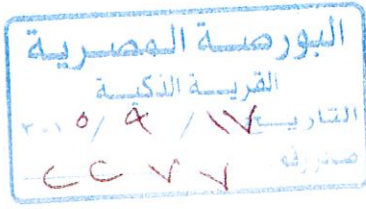 البورصة المصرية
القرية الذكية
التاريخ ١٧ / ٩ / ٢٠١٥
صادر رقم ٢٢٧٧